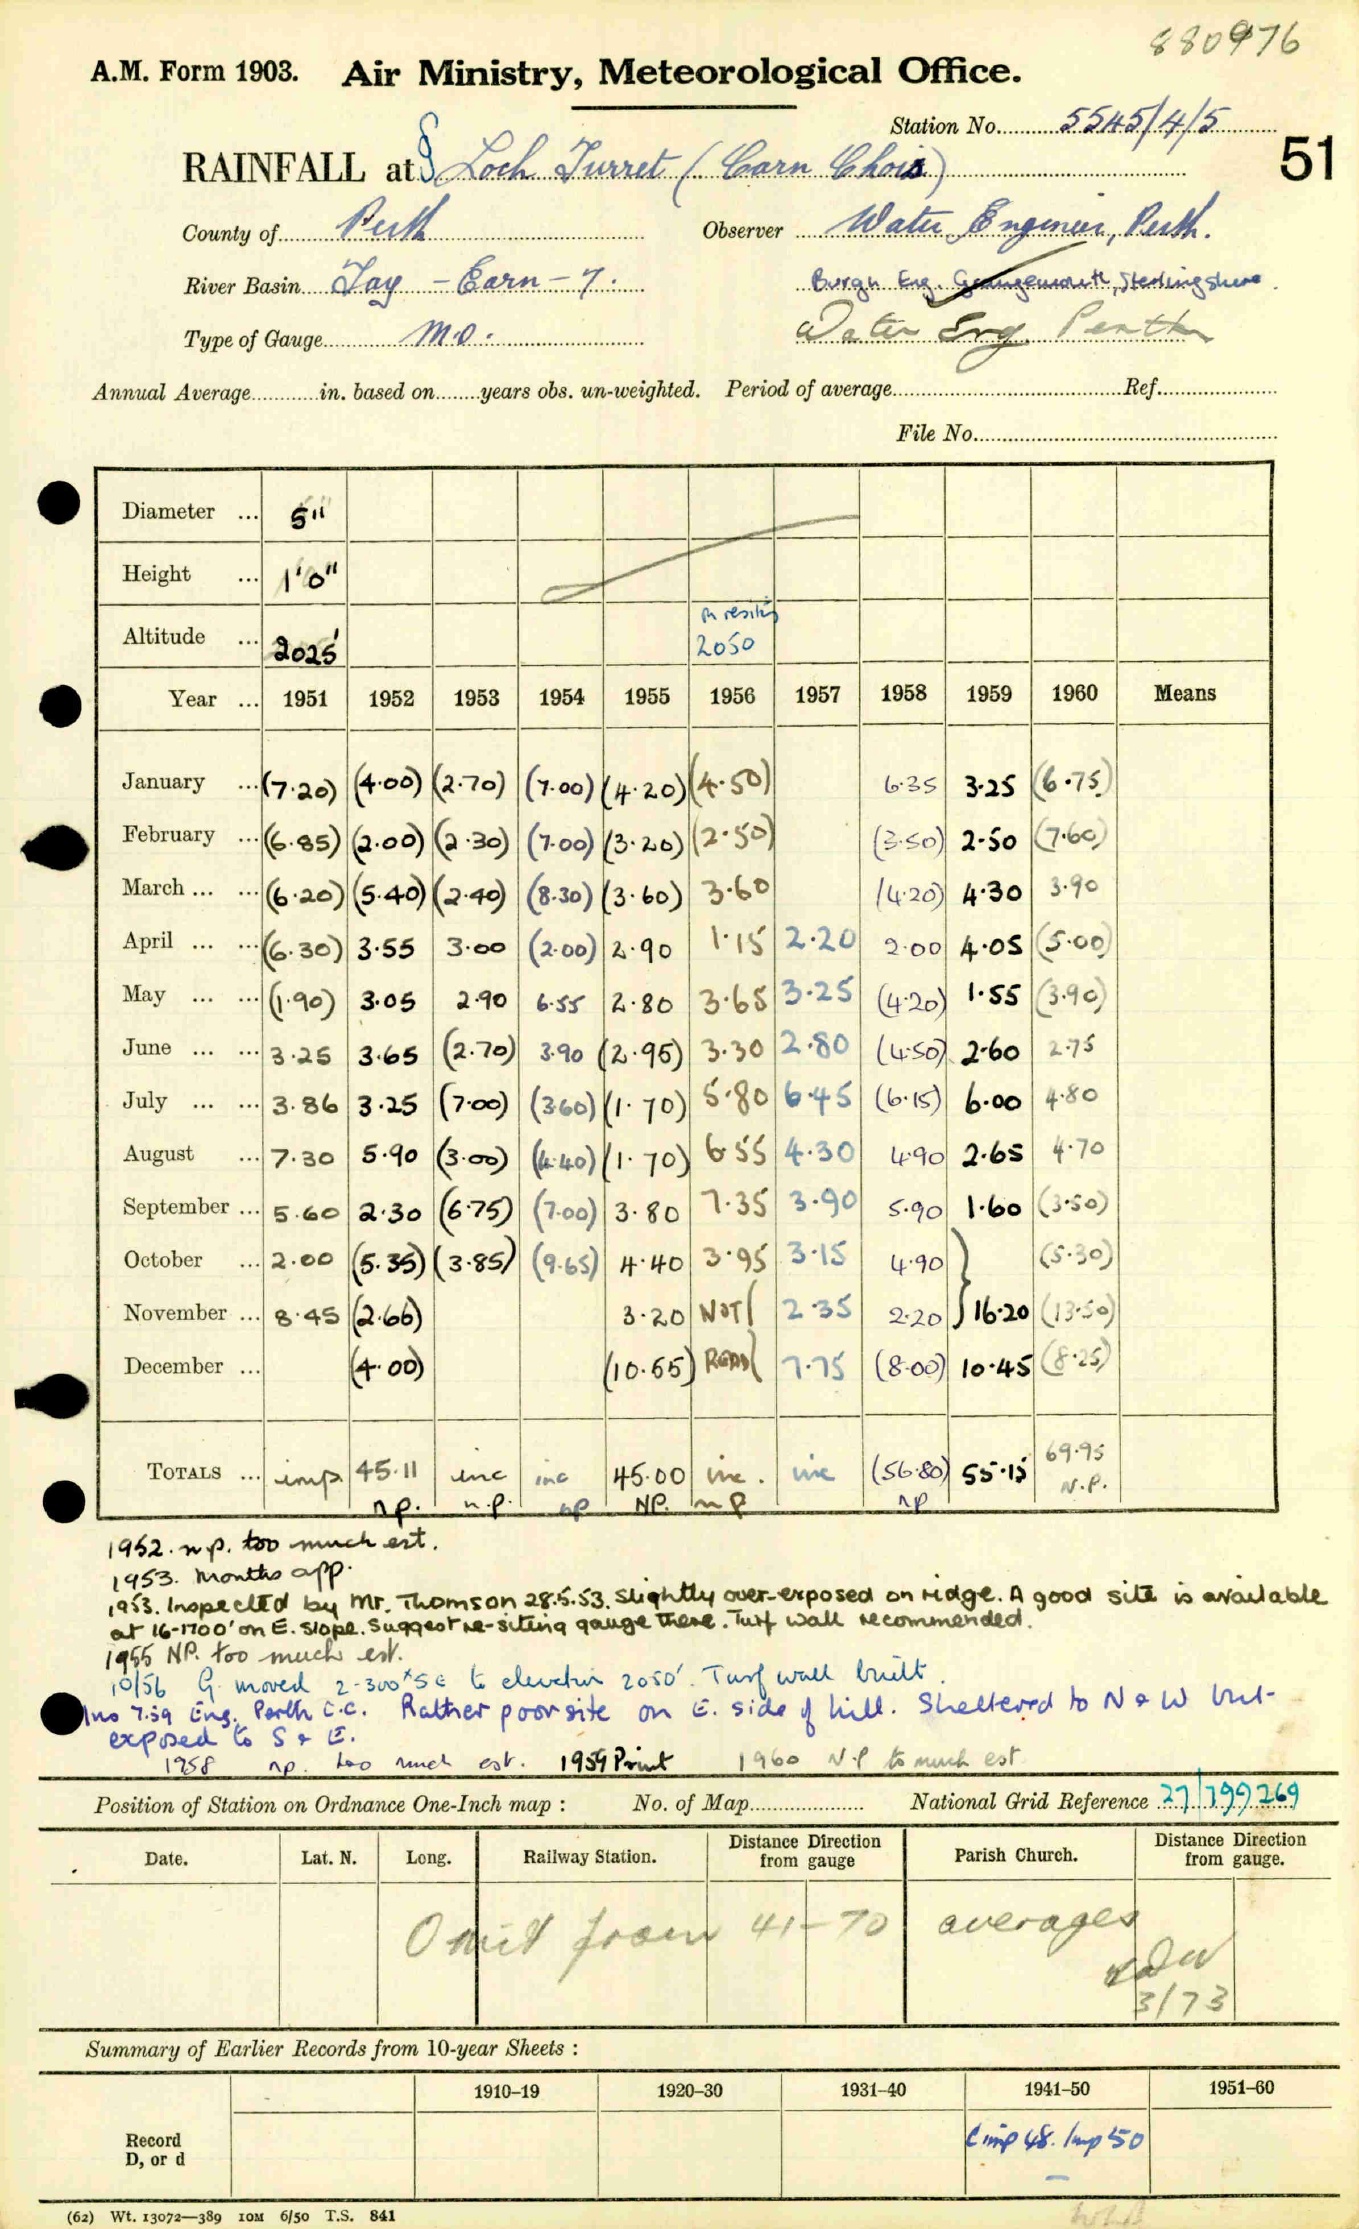 880976
A.M. Form 1903. Air Ministry, Meteorological Office.
Station No. 5545/4/5
51
RAINFALL at § Loch Turret (Carn Chois)
County of Perth Observer Water Engineer, Perth.
River Basin Tay - Earn - 7. Burgh Eng. Grangemouth, Stirlingshire.
Type of Gauge M.O. Water Eng. Perth
Annual Average in. based on years obs. un-weighted. Period of average Ref.
File No.
Diameter ... 5"
Height ... 1'0"
on resiting
Altitude ... 2025' 2050
Year ... 1951 1952 1953 1954 1955 1956 1957 1958 1959 1960 Means
January ... (7.20) (4.00) (2.70) (7.00) (4.20) (4.50) 6.35 3.25 (6.75)
February ... (6.85) (2.00) (2.30) (7.00) (3.20) (2.50) (3.50) 2.50 (7.60)
March ... ... (6.20) (5.40) (2.40) (8.30) (3.60) 3.60 (4.20) 4.30 3.90
April ... ... (6.30) 3.55 3.00 (2.00) 2.90 1.15 2.20 2.00 4.05 (5.00)
May ... ... (1.90) 3.05 2.90 6.55 2.80 3.65 3.25 (4.20) 1.55 (3.90)
June ... ... 3.25 3.65 (2.70) 3.90 (2.95) 3.30 2.80 (4.50) 2.60 2.75
July ... ... 3.86 3.25 (7.00) (3.60) (1.70) 5.80 6.45 (6.15) 6.00 4.80
August ... 7.30 5.90 (3.00) (4.40) (1.70) 6.55 4.30 4.90 2.65 4.70
September ... 5.60 2.30 (6.75) (7.00) 3.80 7.35 3.90 5.90 1.60 (3.50)
October ... 2.00 (5.35) (3.85) (9.65) 4.40 3.95 3.15 4.90 (5.30)
November ... 8.45 (2.66) 3.20 NOT 2.35 2.20 16.20 (13.50)
December ... (4.00) (10.55) READ 7.75 (8.00) 10.45 (8.25)
TOTALS ... imp. 45.11 inc inc 45.00 inc. inc (56.80) 55.15 69.95
n.p. n.p. np NP. n p np N.P.
1952. n.p. too much est.
1953. Months app.
1953. Inspected by Mr. Thomson 28.5.53. Slightly over-exposed on ridge. A good site is available
at 16-1700' on E. slope. Suggest re-siting gauge there. Turf wall recommended.
1955 NP. too much est.
10/56 G. moved 2-300ˣ SE to elevation 2050'. Turf wall built.
Ins 7.59 Eng. Perth C.C. Rather poor site on E. side of hill. Sheltered to N & W but
exposed to S & E.
1958 np. too much est. 1959 Print 1960 N.P to much est
Position of Station on Ordnance One-Inch map : No. of Map National Grid Reference 27/799269
Date. Lat. N. Long. Railway Station. Distance Direction from gauge Parish Church. Distance Direction from gauge.
Omit from 41-70 averages
3/73
Summary of Earlier Records from 10-year Sheets :
1910-19 1920-30 1931-40 1941-50 1951-60
Record
D, or d
C imp 48. Imp 50
(62) Wt. 13072—389 10M 6/50 T.S. 841